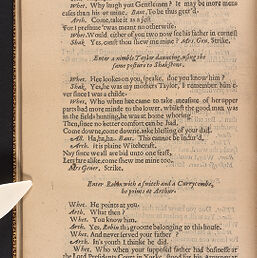 Whet. Why laugh you Gentlemen? It may be more mens
case than his or mine. Bant. To be thus geer'd.
Arth. Come, take it as a jest
For I presume 'twas meant no otherwise.
Whet. Would either of you two now see his father in earnest.
Shak. Yes, canst thou shew me mine? Mrs. Gen. Strike.
Enter a nimble Taylor dauncing, using the
same posture to Shakstone.
Whet. Hee lookes on you, speake, doe you know him?
Shak. Yes, he was my mothers Taylor, I remember him e-
ver since I was a childe.
Whet. Who when hee came to take measure of her upper
parts had more minde to the lower, whilst the good man was
in the fields hunting, he was at home whoring.
Then, since no better comfort can be had,
Come downe, come downe, aske blessing of your dad.
All. Ha, ha, ha. Bant. This cannot be indur'd.
Arth. It is plaine Witchcraft.
Nay since we all are bid unto one feast,
Lets fare alike, come shew me mine too.
Mrs Gener. Strike.
Enter Robin with a switch and a Currycombe,
he points at Arthur.
Whet. He points at you.
Arth. What then?
Whet. You know him.
Arth. Yes, Robin the groome belonging to this house.
Whet. And never served your father?
Arth. In's youth I thinke he did.
Whet. Who when your supposed father had businesse at
the Lord Presidents Court in Yorke, stood for his Attorney at